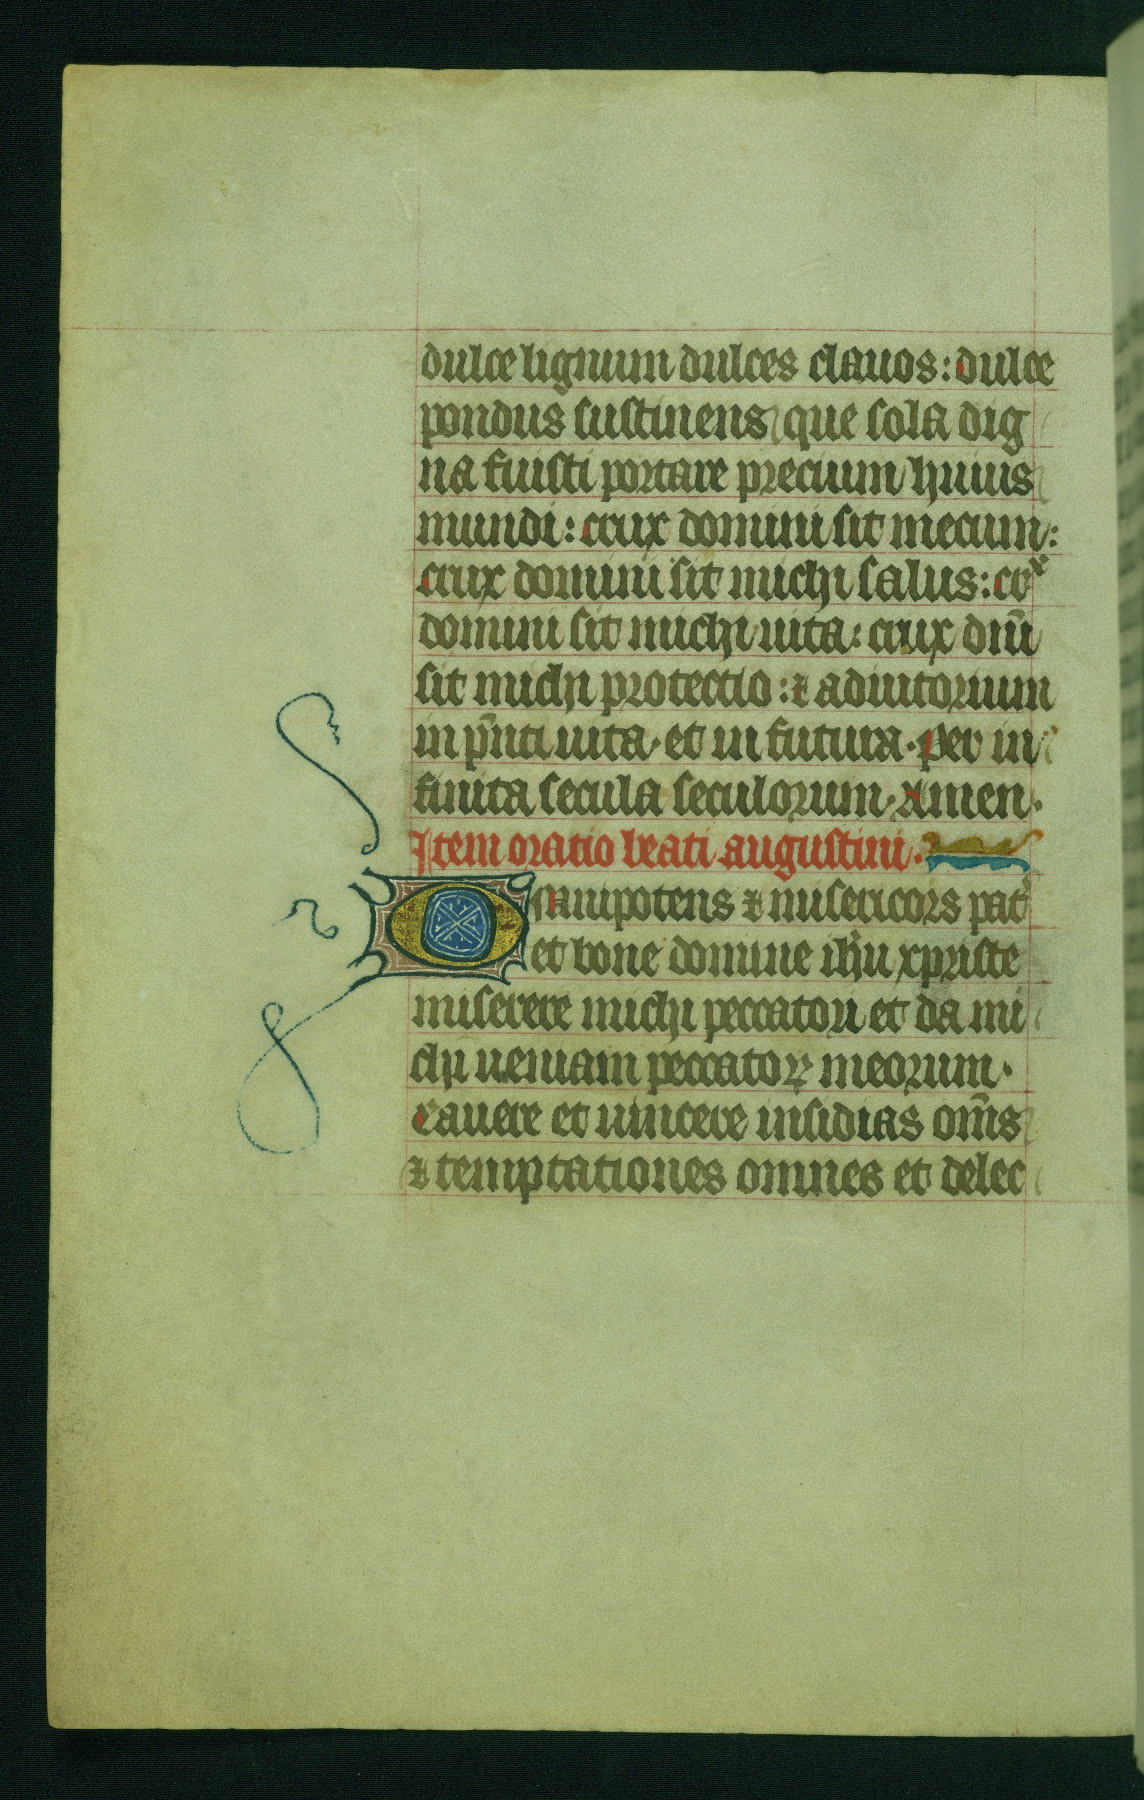 dulce lignum dulces clauos: dulce
pondus sustinens que sola dig
na fuisti portare precium huius
mundi: crux domini sit mecum:
crux domini sit michi salus: crx
domini sit michi uita: crux dnī
sit michi protectio: ⁊ adiutorium
in pn̄ti uita· et in futura· Per in
finita secula seculorum· Amen·
Item oratio beati augustini·
Omnipotens ⁊ misericors pat᷑
et bone domine ih̄u xpriste
miserere michi peccatori et da mi
chi ueniam peccatoꝝ meorum·
Cauere et uincere insidias om̄s
⁊ temptationes omnes et delec